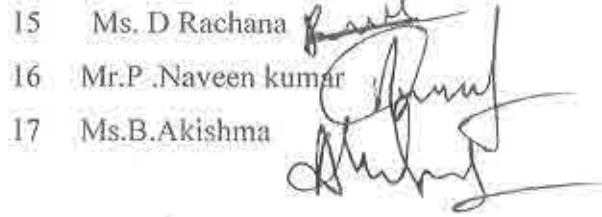 15 Ms. D Rachana
16 Mr.P .Naveen kumar
17 Ms.B.Akishma